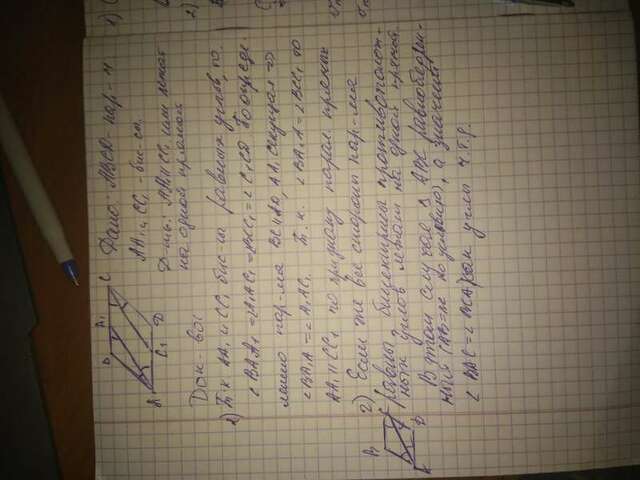 Дано: ABCD - пар-м
AA₁ и CC₁ - бис-сы.
Д-ть: AA₁ || CC₁ или лежат
на одной прямой
B A₁ C
A C₁ D
Док-во:
1) Т.к. AA₁ и CC₁ бис-сы равных углов, то
∠BAA₁ = ∠A₁AC₁ = ∠BCC₁ = ∠C₁CD по опреде-
лению пар-ма BC || AD, AA₁ секущая =>
∠BA₁A = ∠A₁AC₁ Т.к. ∠BA₁A = ∠BCC₁ то
AA₁ || CC₁ по признаку парал. прямых
2) Если же все стороны пар-ма
равны, биссектрисы противополож-
ных углов лежат на одной прямой.
В этом случае Δ ABC равнобедрен-
ный (AB = по условию), а значит
∠BAC = ∠BCA углы ч.т.д.